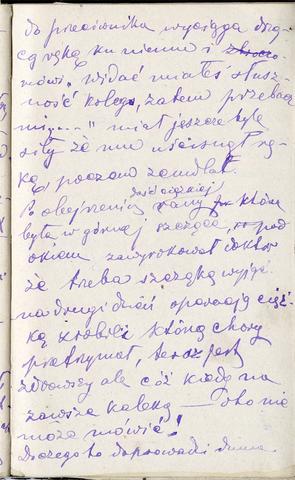 do przeciwnika wyciąga drżą
cą rękę ku niemu i
mówi „Widać miałeś słusz-
ność kolego, zatem przebacz
mi......" miał jeszcze tyle
siły że mu uścisnął rę-
kę, poczem zemdlał.
Po obejrzeniu dość ciężkiej rany, która
była w górnej szczęce, pod
okiem zawyrokował doktor
że trzeba szczękę wyjąć.
na drugi dzień operację cięż-
ką zrobili którą chory
przetrzymał, teraz jest
zdrowszy ale cóż kiedy na
zawsze kaleką — bo nie
może mówić!
Do czego to doprowadi duma